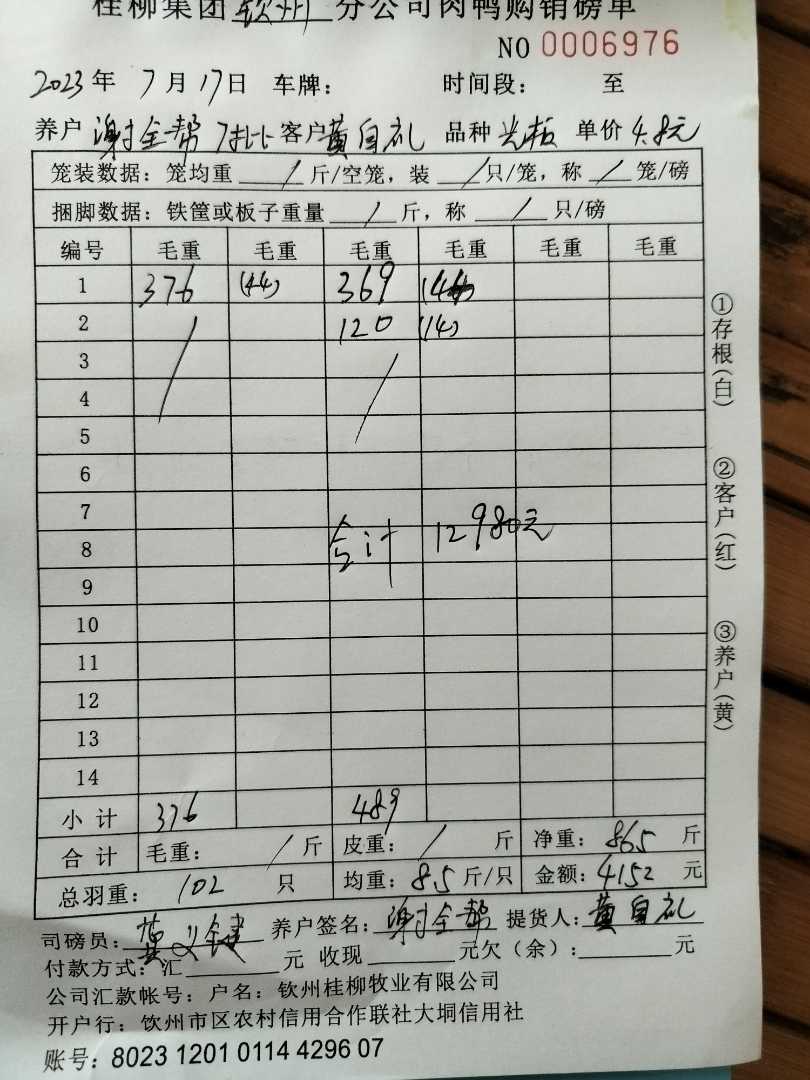 桂柳集团钦州分公司肉鸭购销磅单
NO 0006976
2023年 7月17日 车牌： 时间段： 至
养户 谢全帮 客户黄自礼 品种 单价 4.8元
笼装数据：笼均重 / 斤/空笼，装 / 只/笼，称 / 笼/磅
捆脚数据：铁筐或板子重量 / 斤，称 / 只/磅
编号 毛重 毛重 毛重 毛重 毛重 毛重
1 376 (44) 369 (44)
2 / 120 (14)
3 /
4
5
6
7
8 合计 12980元
9
10
11
12
13
14
小计 376 489
合计 毛重： / 斤 皮重： / 斤 净重： 865 斤
总羽重： 102 只 均重：8.5 斤/只 金额：4152 元
司磅员：黄义键 养户签名：谢全帮 提货人：黄自礼
付款方式：汇 元 收现 元欠（余）： 元
公司汇款帐号：户名：钦州桂柳牧业有限公司
开户行：钦州市区农村信用合作联社大垌信用社
账号：8023 1201 0114 4296 07
①存根（白）
②客户（红）
③养户（黄）